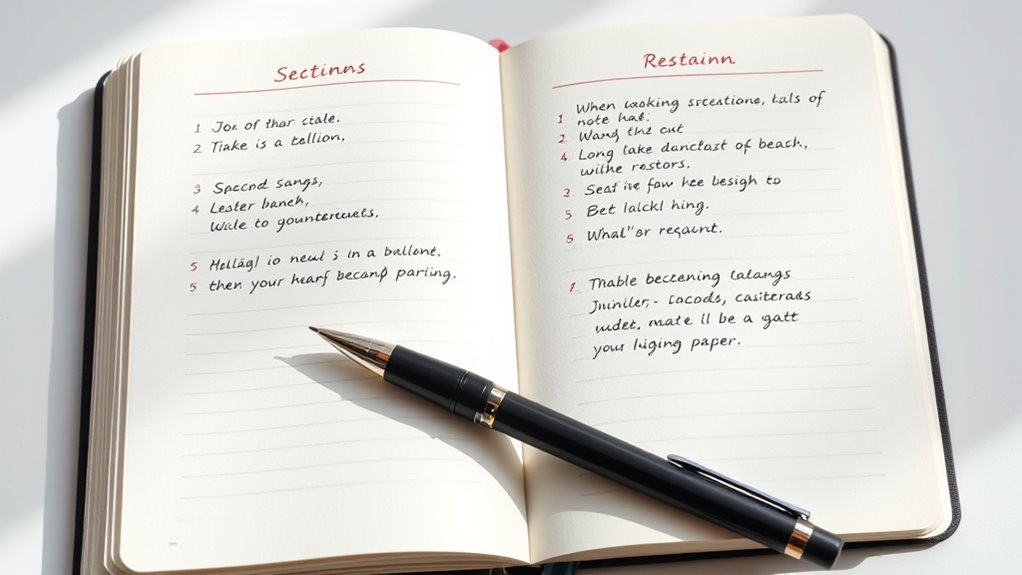 Sectinns
1 Jor of thar ctale.
2 Tiake is a tellion,
3 Spccnd sangs,
4 Lester banch,
Wide to gountercuets.
5 Hellägl io neul s in a ballont,
5 then your hearf becanp parling.
Restainn
When looking srceatione, tals of
1 note hat:
2 Wang the cut
4. Long take danctast of beash,
withe rostors.
3. Seaf ite fow hee besigh to
5 Bet laickl hing.
5 What" or regaurt.
1. Thable beccening Catangs
Juniler,- Cocods, casiterads
wdet. mate ll be a gatt
your liiging paper.